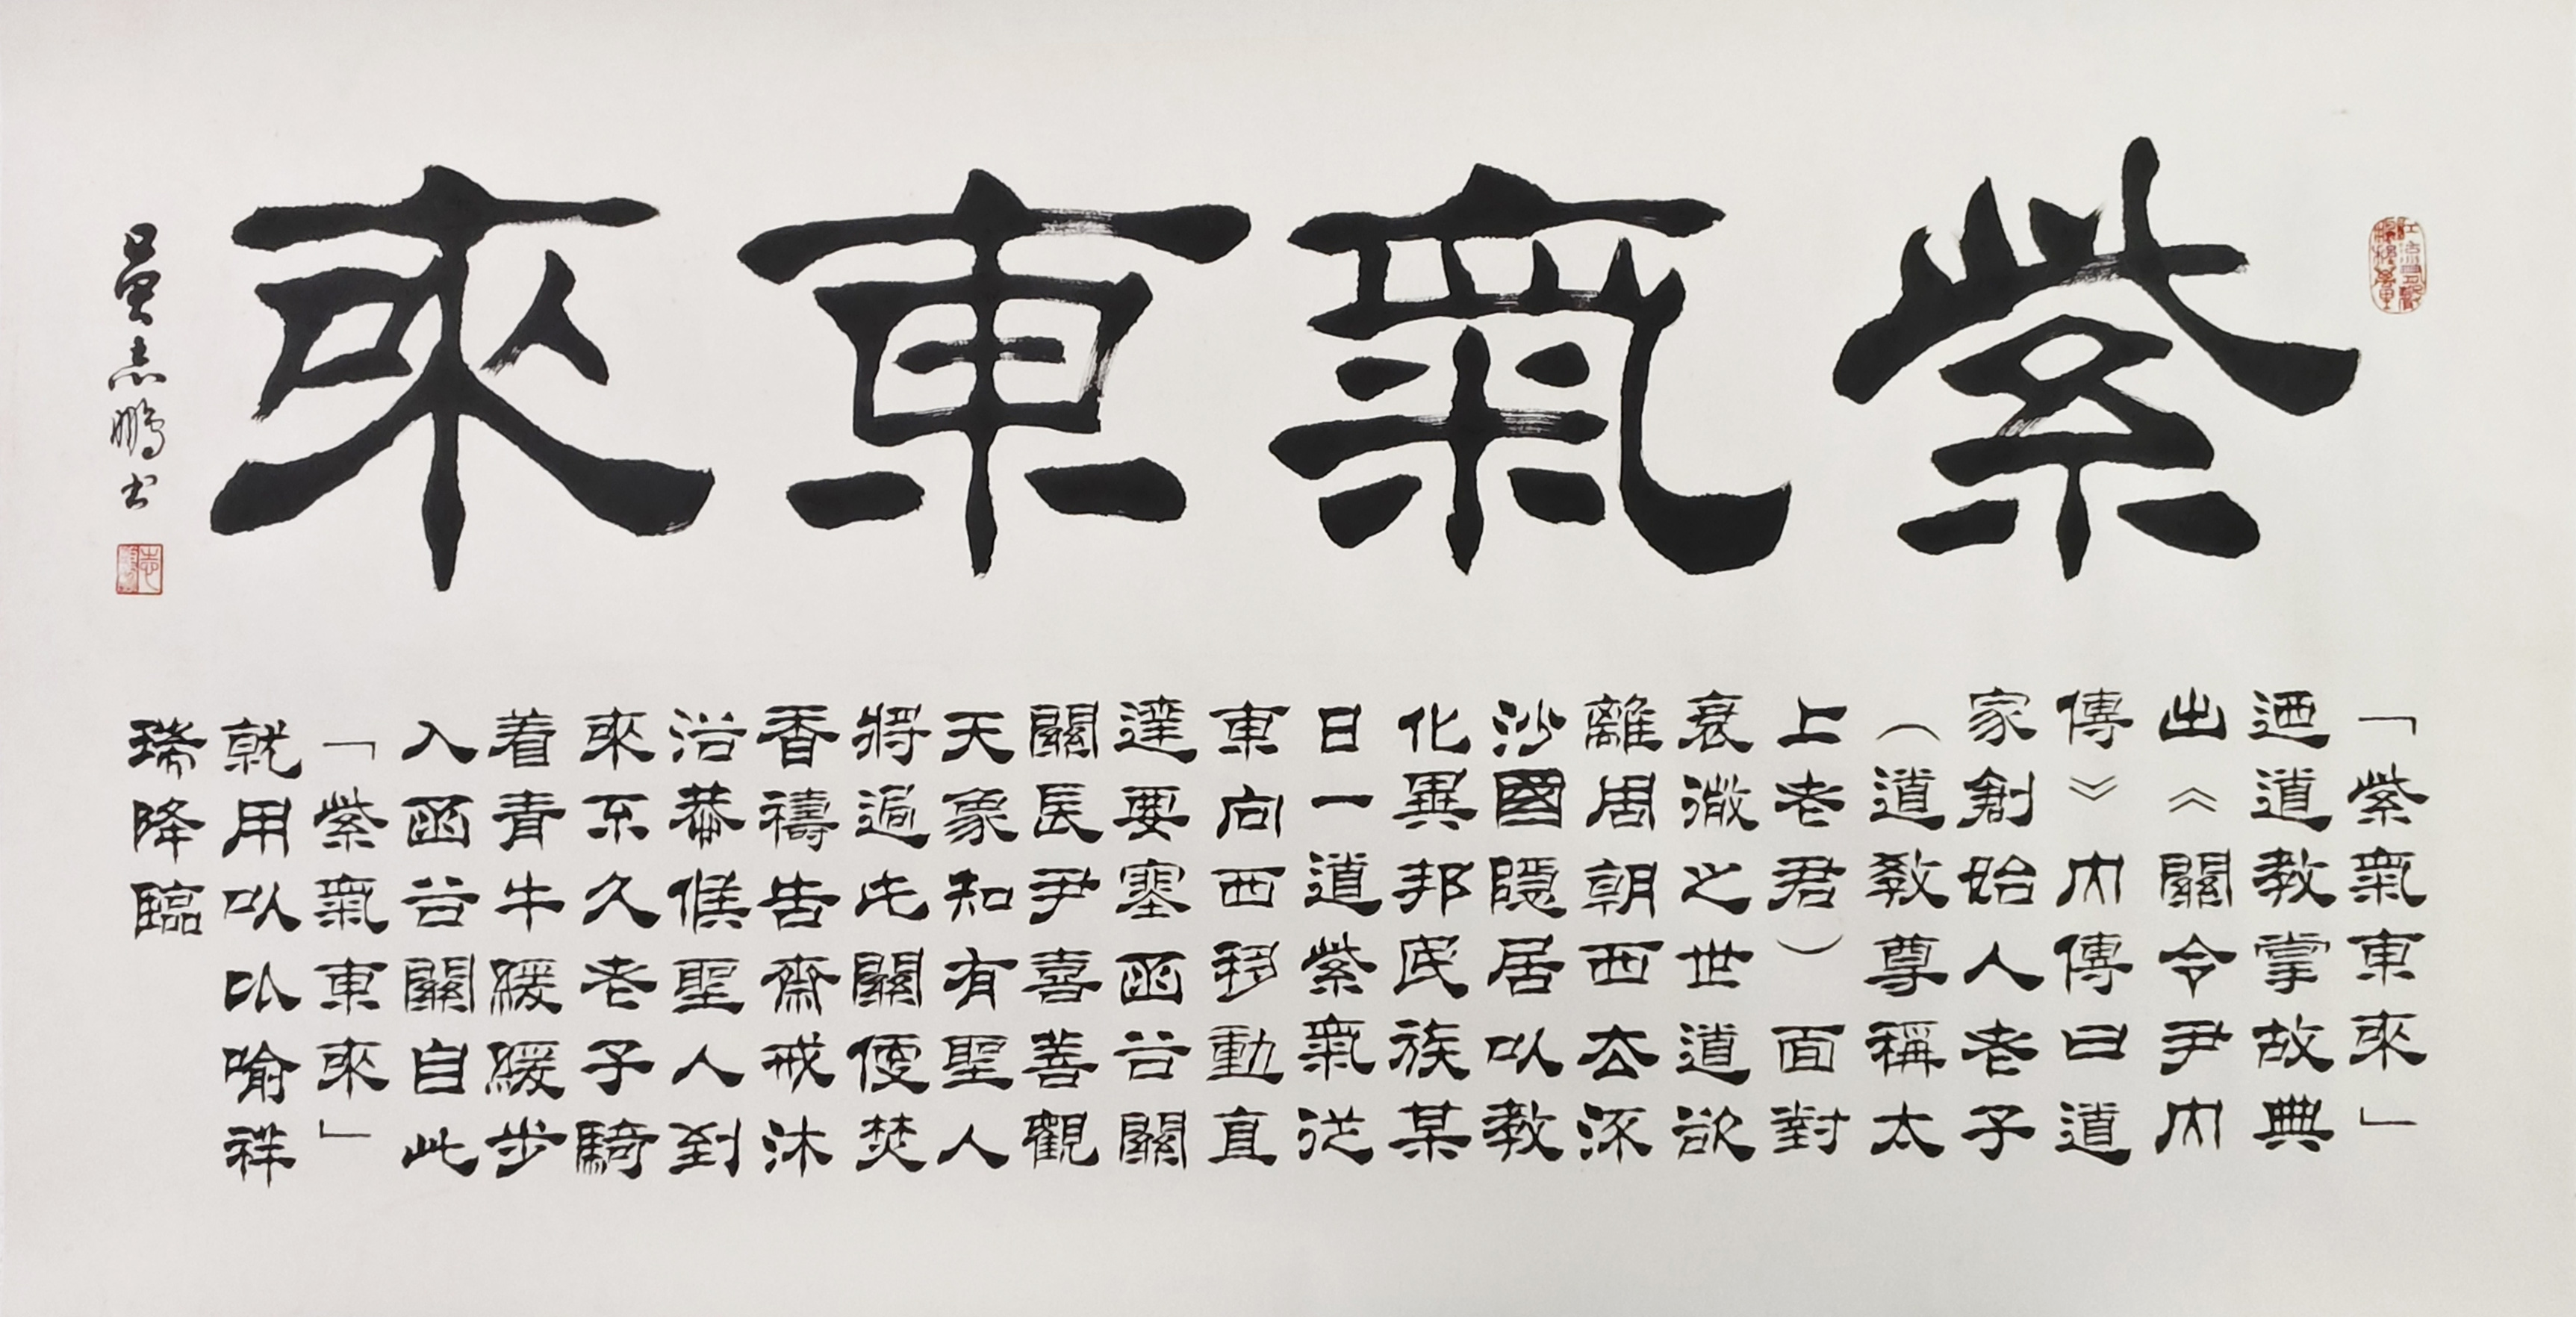 紫氣東來
志鵬书
「紫氣東來」
迺道教掌故典
出《關令尹內
傳》內傳曰道
家創始人老子
（道教尊稱太
上老君）面對
衰微之世道欲
離周朝西去流
沙國隱居以教
化異邦民族某
日一道紫氣從
東向西移動直
達要塞函谷關
關長尹喜善觀
天象知有聖人
將過此關便焚
香禱告齋戒沐
浴恭候聖人到
來不久老子騎
着青牛緩緩步
入函谷關自此
「紫氣東來」
就用以以喻祥
瑞降臨